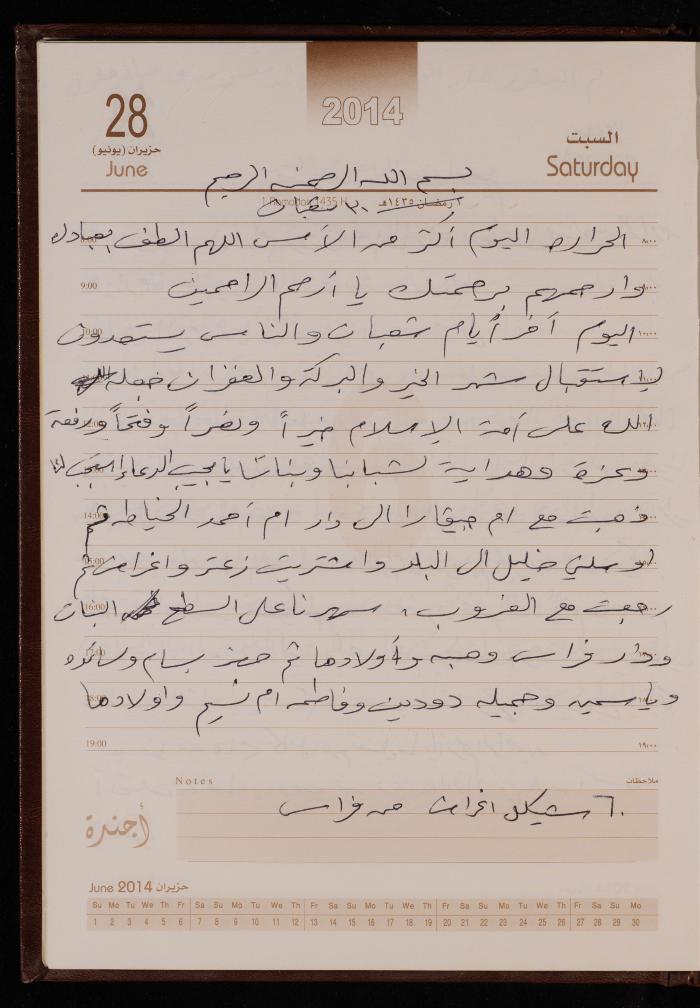 2014
28
حزيران (يونيو)
June
السبت
Saturday
بسم الله الرحمن الرحيم
1 Ramadan 1435 H
رمضان ١٤٣٥هـ
٣٠ شعبان
الحراره اليوم أكثر من الأمس اللهم الطف بعبادك
وارحمهم برحمتك يا أرحم الراحمين
اليوم آخر أيام شعبان والناس يستعدون
لإستقبال شهر الخير والبركة والغفران جعله
الله على أمة الإسلام خيراً ونصراً وفتحاً ورفعة
وعزة وهداية لشبابنا وبناتنا يا مجيب الدعاء استجب لنا
ذهبت مع ام جيفارا الى دار ام أحمد الخياطه ثم
اوصلني خليل الى البلد واشتريت زعتر واغراض ثم
رجعت مع الغروب، سهرنا على السطح البنات
ودار فراس وحبه وأولادها ثم حضر بسام وسائده
وياسمين وجميله دودين وفاطمه ام نسيم واولادها
8:00
٨:٠٠
9:00
٩:٠٠
10:00
١٠:٠٠
14:00
15:00
16:00
17:00
18:00
19:00
١٩:٠٠
Notes
ملاحظات
٦٠ شيكل اغراض من فراس
أجندة
June 2014 حزيران
Su Mo Tu We Th Fr Sa Su Mo Tu We Th Fr Sa Su Mo Tu We Th Fr Sa Su Mo Tu We Th Fr Sa Su Mo
1 2 3 4 5 6 7 8 9 10 11 12 13 14 15 16 17 18 19 20 21 22 23 24 25 26 27 28 29 30